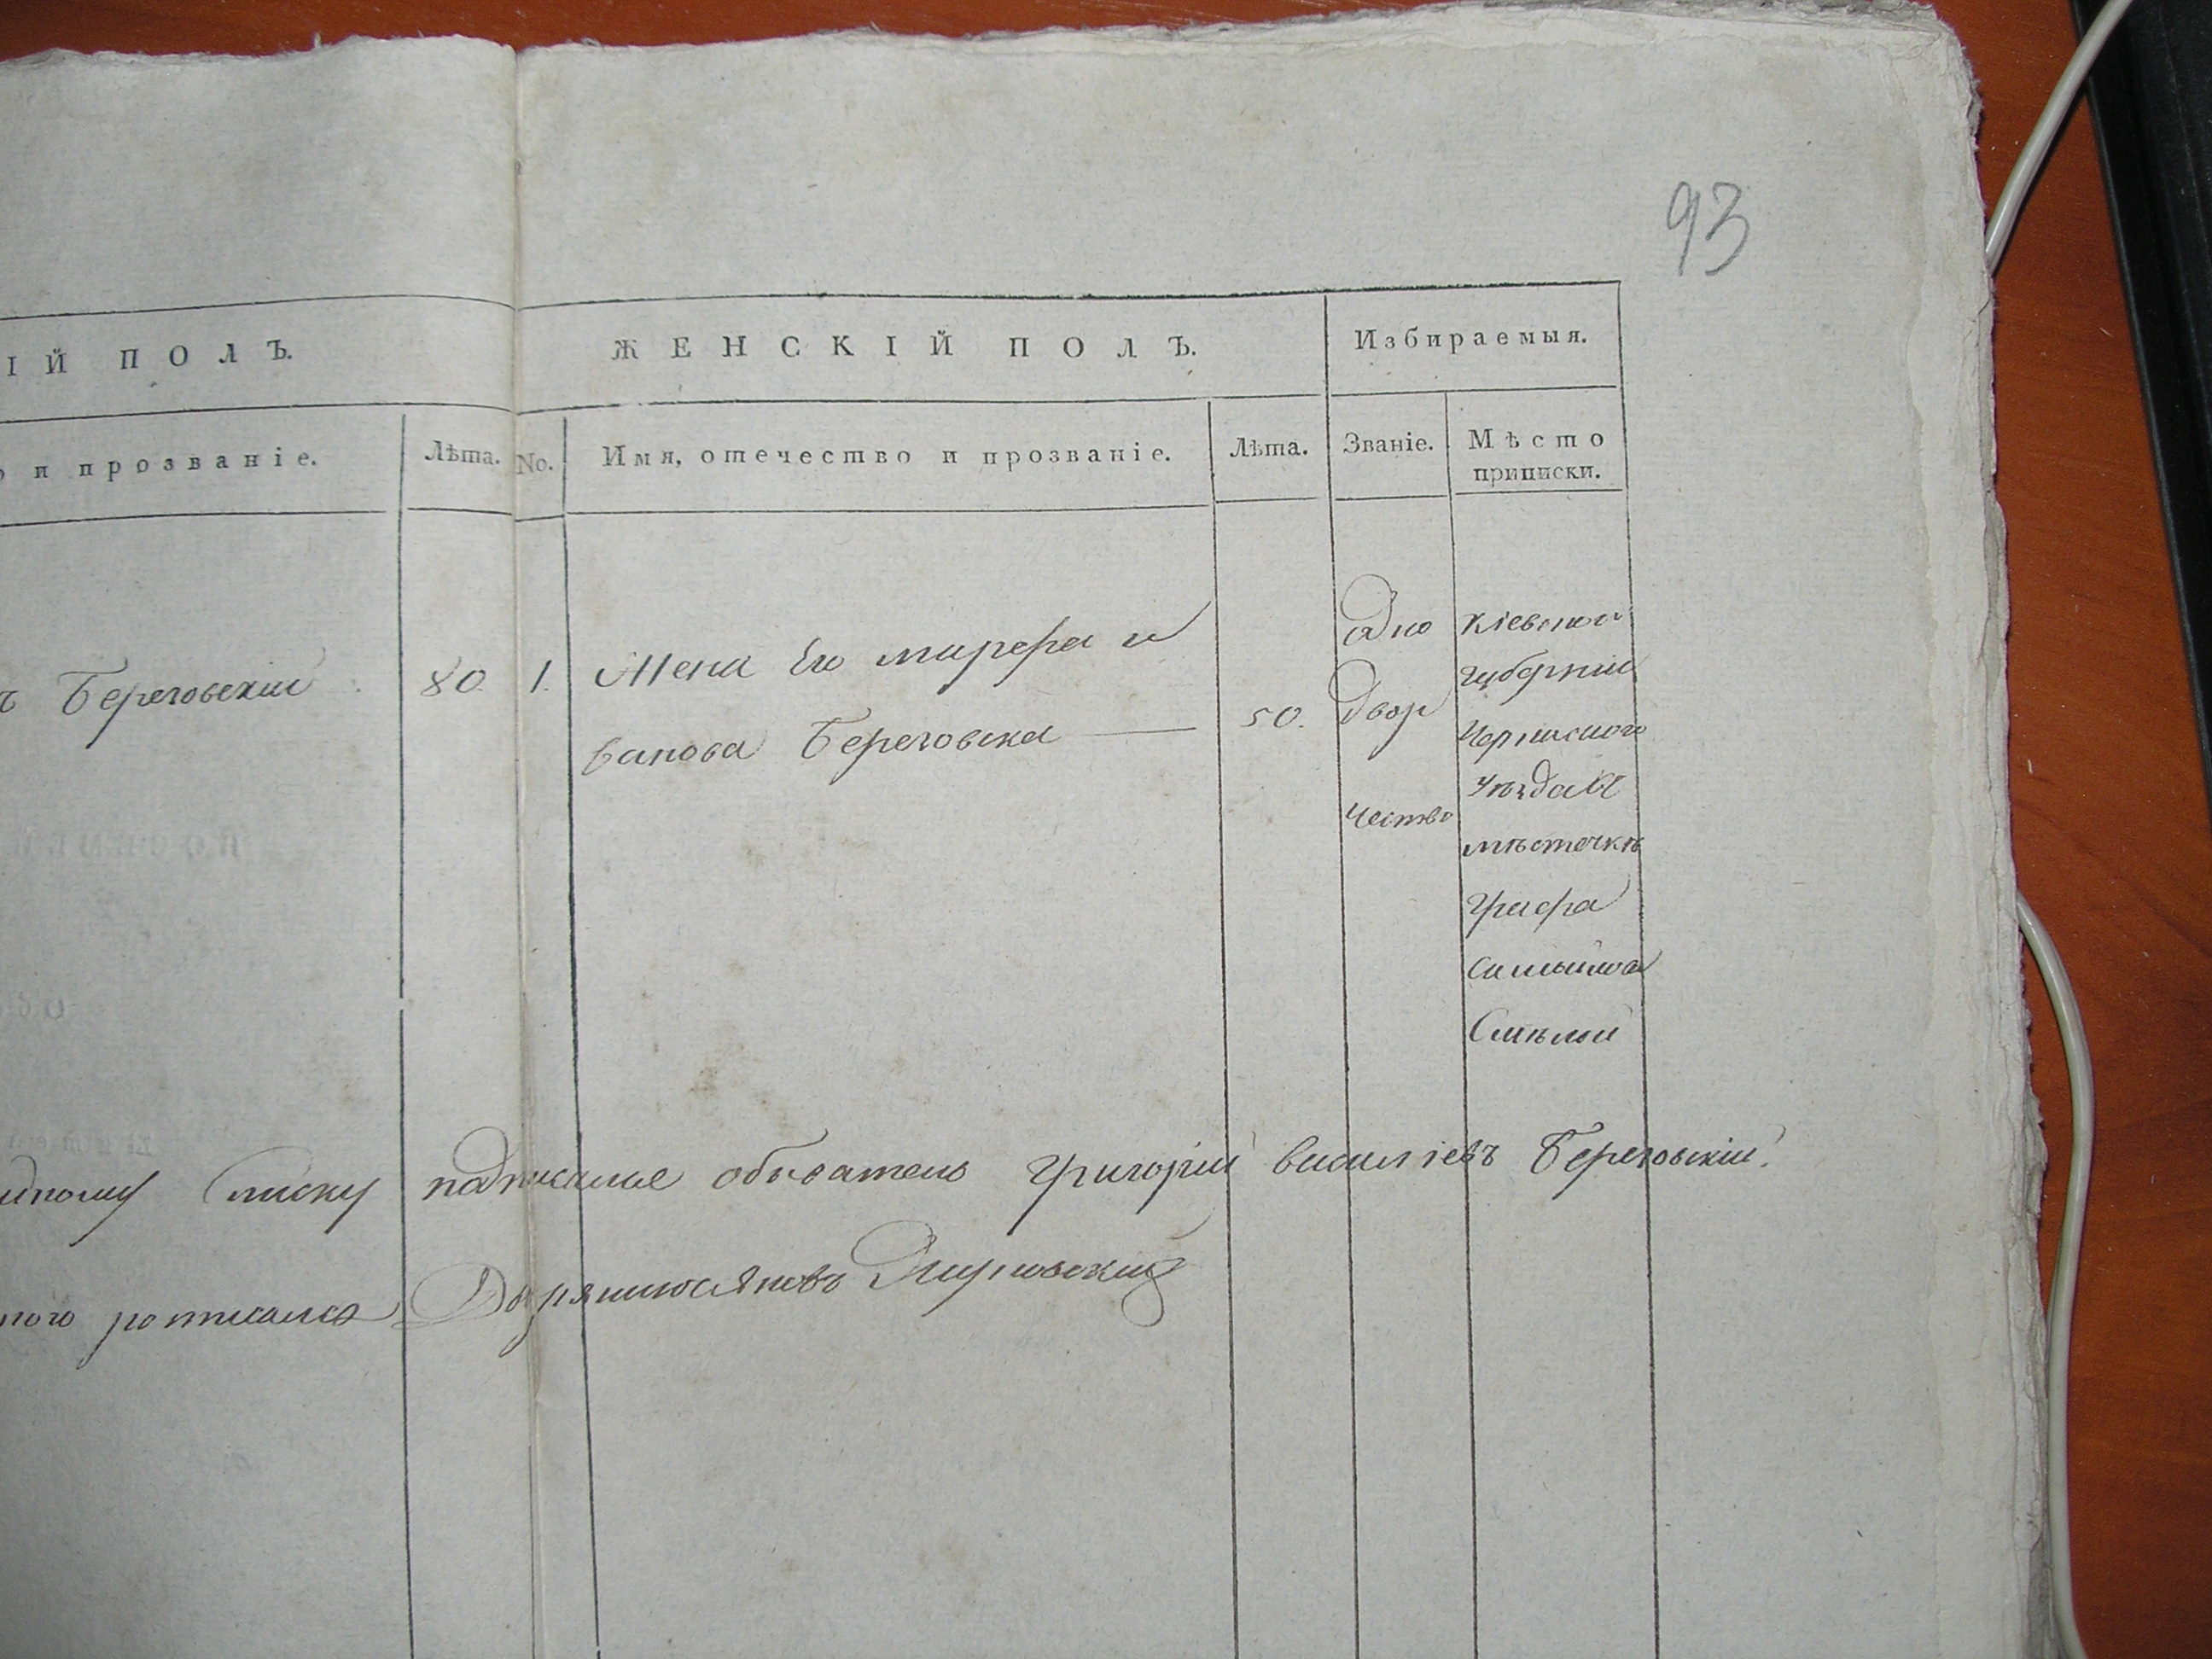 93
ІЙ ПОЛЪ.
ЖЕНСКІЙ ПОЛЪ.
Избираемыя.
и прозваніе.
Лѣта.
No.
Имя, отечество и прозваніе.
Лѣта.
Званіе.
Мѣсто
приписки.
Береговскій
80.
1.
Жена Его марфа и
ванова Береговска
50.
Одно
двор
чество
Кіевской
губерніи
Черкаского
уѣзда въ
мѣстечкѣ
графа
Самойлова
Смѣлой
списку подписался обыватель Григорій васил іевъ Береговскій.
росписался Дворянинъ Яковъ